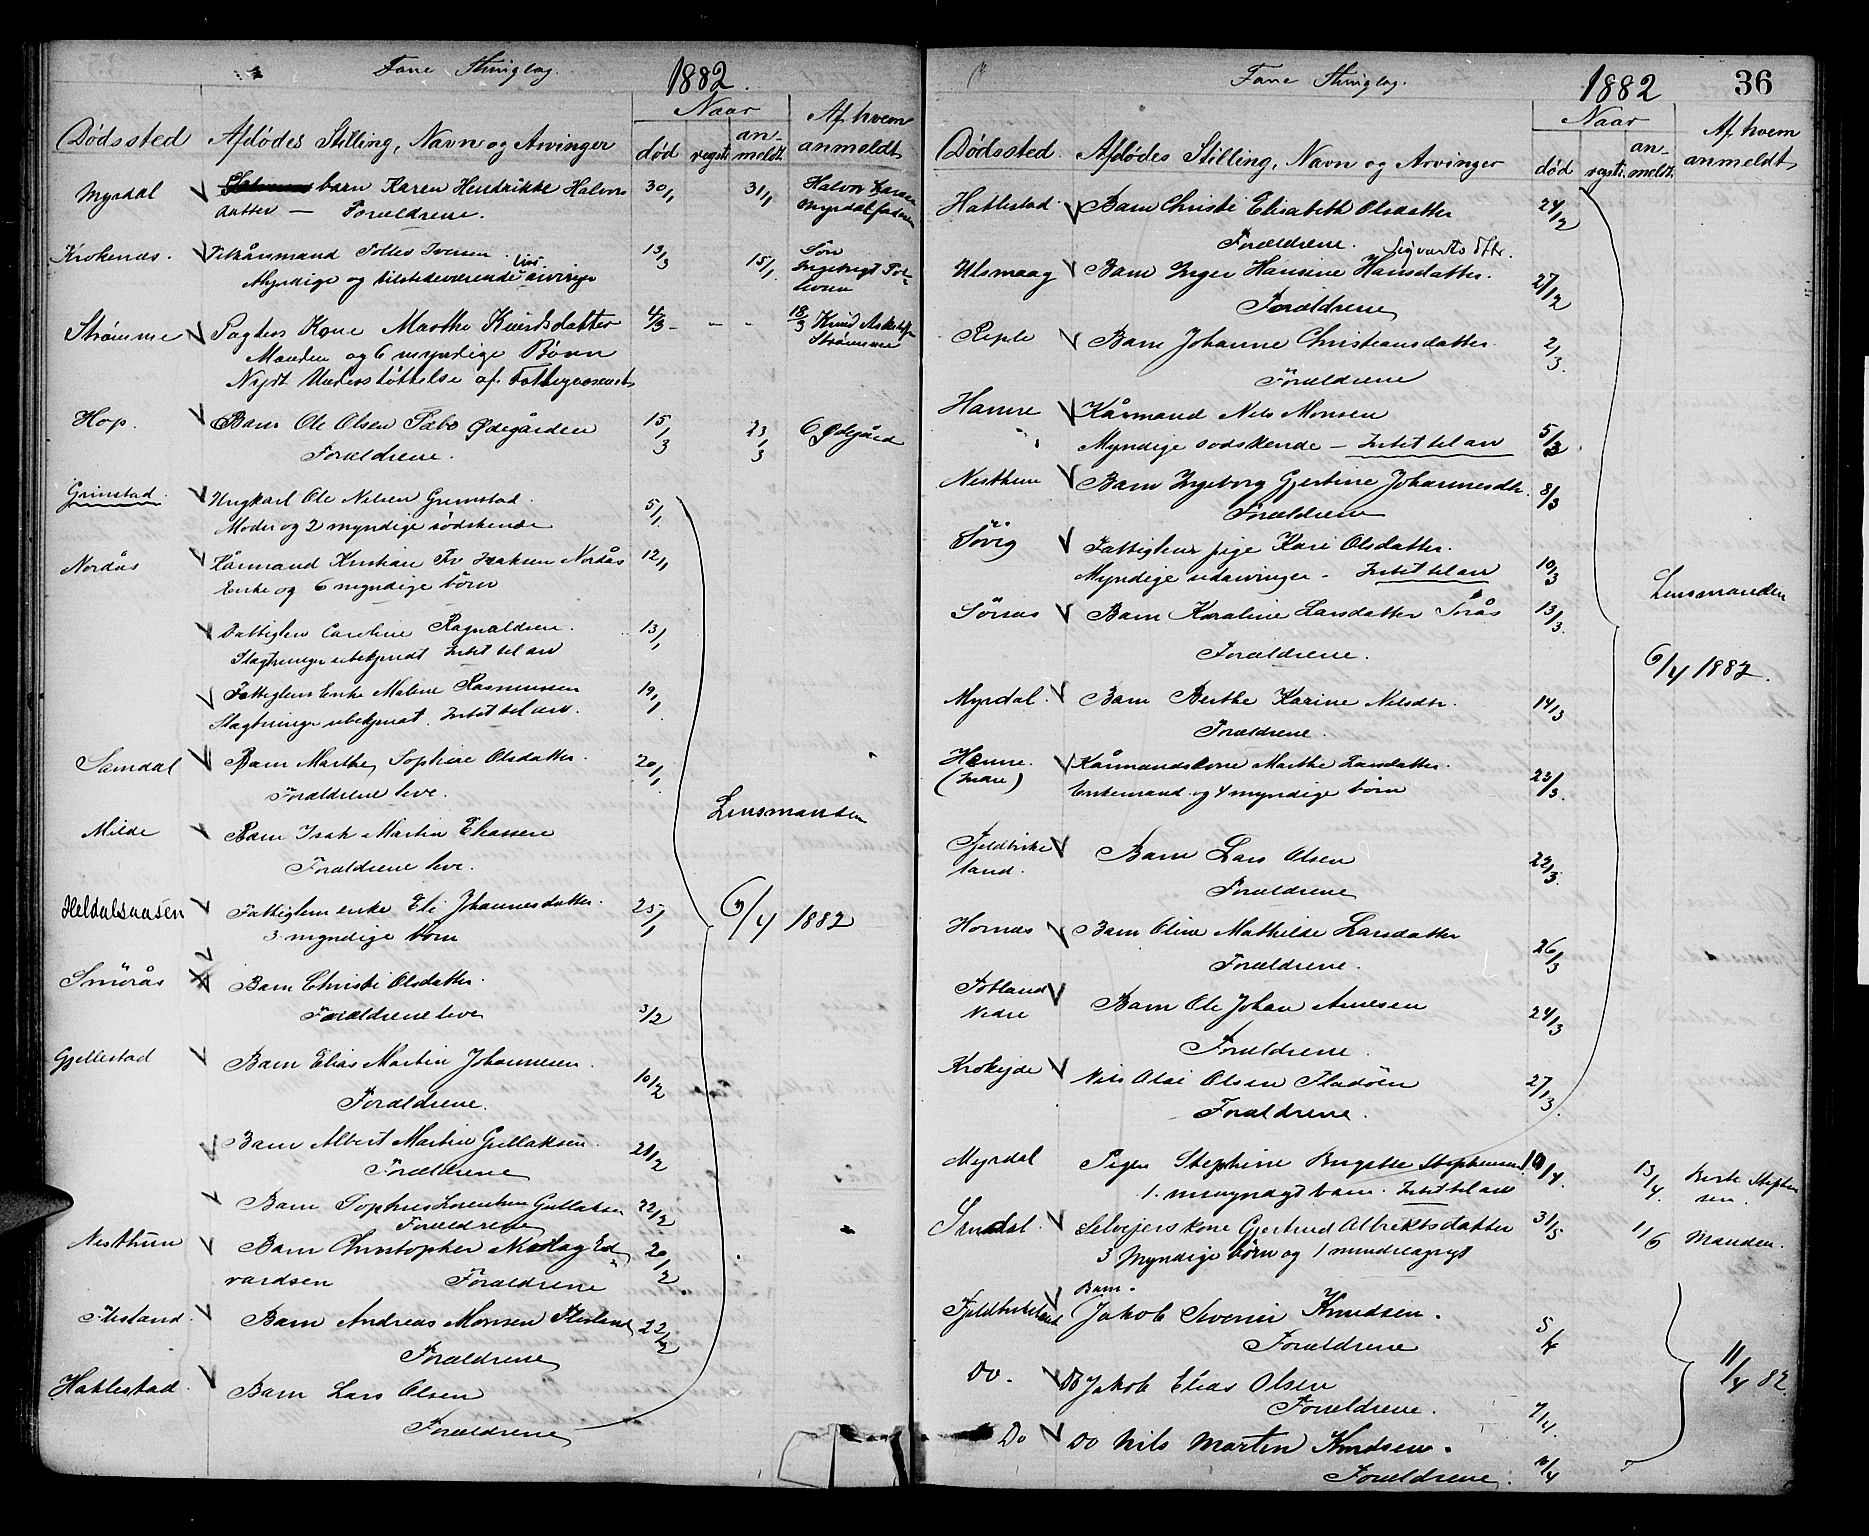 Fane Thinglag.
1882.
Naar
Dødssted Afdødes Stilling, Navn og Arvinger død regstr. an-meldt. Af hvem anmeldt
Myrdal barn Karen Hendrikke Halvors 30/1 31/1 Halvor
datter — Forældrene. Myrdal faderen
Krokenæs. Vilkårsmand Tollev Iversen 13/3 15/1 Søn
Myndige og tilstedeværende Livs arvinger
Strømme Pagters Kone Marthe Knudsdatter 4/3 - - - 18/3 Knud
Manden og 6 myndige Børn Strømme
Nydt Understøttelse af Fattigvæsenet
Hop. Barn Ole Olsen Sæbø Ødegården 15/3 23/3 O Ødegård
Forældrene.
Grimstad. Ungkarl Ole Nilsen Grimstad. 5/1
Moder og 2 myndige södskende
Nordås Kårmand Kristian Isaksen Nordås 12/1
Enke og 6 myndige börn
Fattiglem Caroline Ragnaldsen. 13/1
Slægtninge ubekjendt Intet til arv
Fattiglem Enke Malene Rasmussen 19/1
Slægtninge ubekjendt. Intet til arv.
Samdal Barn Marthe Sophie Olsdatter 20/1
Forældrene leve.
Milde Barn Isak Martin Eliassen
Forældrene leve.
Lensmanden
Heldalsaasen Fattiglem enke Eli Johannesdatter. 25/1 6/4 1882
3 myndige börn
Smörås Barn Christi Olsdatter.
Forældrene leve 3/2
Gjellestad Barn Elias Martin Johannesen. 10/2
Forældrene.
Barn Albert Martin Gullaksen. 21/2
Forældrene
Barn Sophus Lorentsen Gullaksen 22/2
Forældrene
Nesthun Barn Christopher Nicolay Ed 20/2
vardsen Forældrene
Flesland. Barn Andreas Monsen Flesland 22/2
Forældrene
Hatlestad. Barn Lars Olsen
Forældrene
Fane Thinglag.
1882 36
Naar
Dødssted. Afdødes Stilling, Navn og Arvinger død regstr. an-meldt. Af hvem anmeldt
Hatlestad. Barn Christi Elisabeth Olsdatter 24/2
Forældrene. Sigvarts dtr.
Ulsmaag Barn Inger Hansine Hansdatter. 27/2
Forældrene
Reple Barn Johanne Christiansdatter. 2/3
Forældrene
Hamre Kårmand Nils Monsen
Myndige sødskende — Intet til arv 5/3
Nesthun Barn Ingeborg Gjertine Johannesdtr. 8/3
Forældrene
Søvig Fattiglem pige Kari Olsdatter.
Myndige udarvinger - Intet til arv 10/3
Lensmanden
Sörås Barn Karoline Larsdatter Sørås 13/3
Forældrene.
6/4 1882.
Myrdal. Barn Berthe Karine Nilsdtr. 14/3
Forældrene.
Hamre. Kårmandskone Marthe Larsdatter.
(Indre) Enkemand og 4 myndige börn 23/3.
Fjeldbirke Barn Lars Olsen 22/3.
land. Forældrene
Hornæs Barn Oline Mathilde Larsdatter 26/3
Forældrene.
Totland Barn Ole Johan Arnesen
Nedre 24/3
Forældrene.
Krokeide Nils Olai Olsen Pladsen 27/3
Forældrene.
Myrdal Pigen Stephine Birgitte Stephensen 10/4 13/4 Stephen
1. umyndigt barn. Intet til arv sen.
Smdal. Selvejerskone Gjertrud Albriktsdatter 31/5 1/6 Manden.
3 Myndige börn og 1 mindreårigt
Barn.
Fjeldbirkeland Jakob Severin Knudsen. 5/4
Forældrene
11/4 82.
Do. Do Jakob Elias Olsen
Forældrene. 7/4
Do Do Nils Martin Knudsen.
Forældrene.